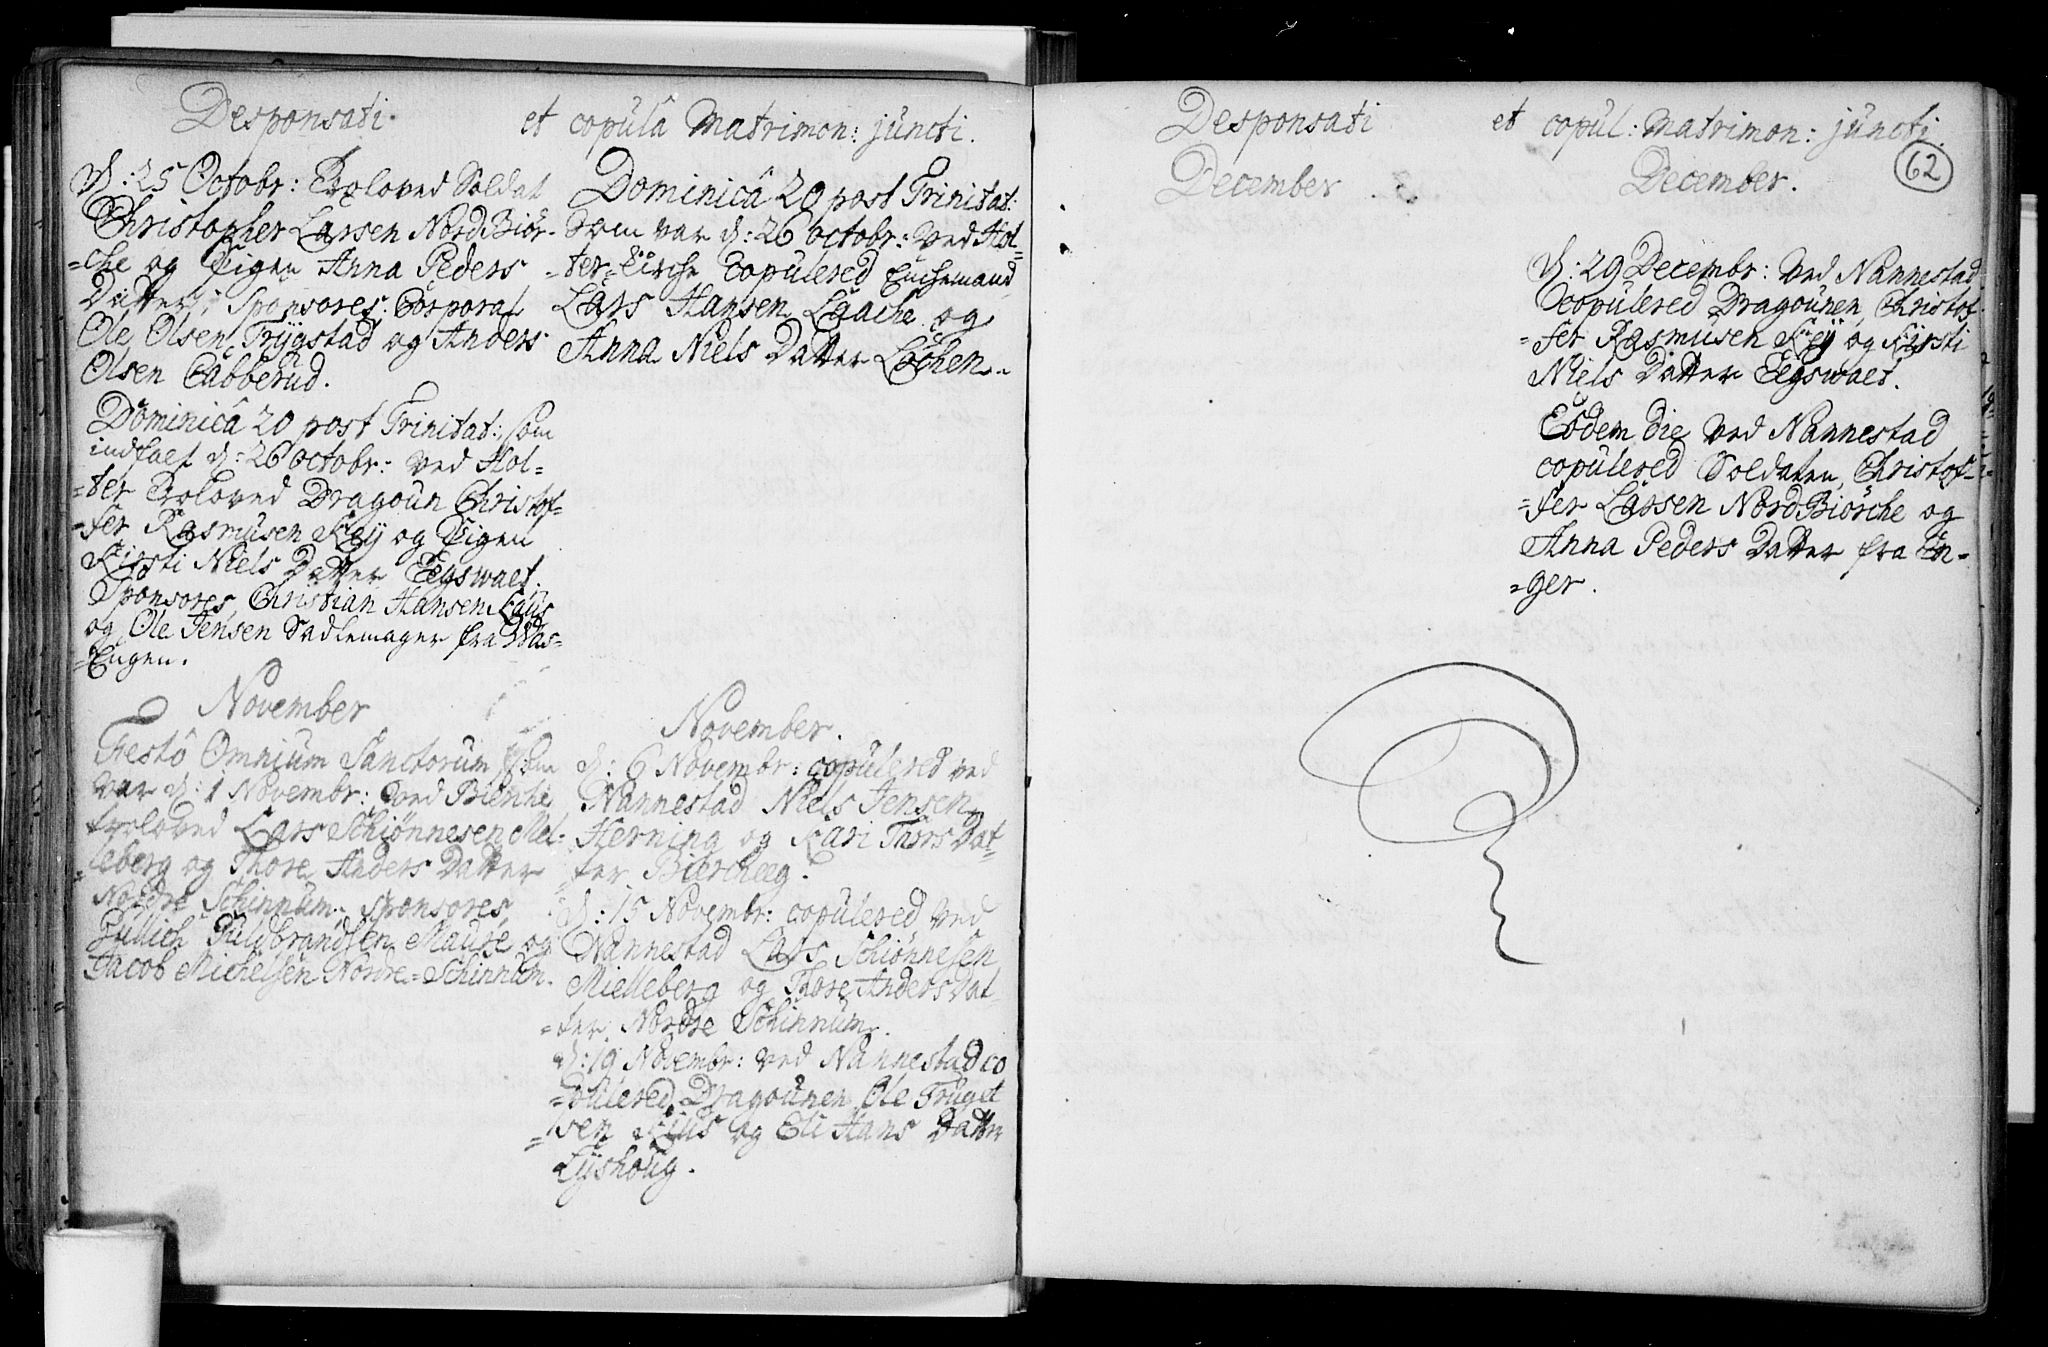 Desponsati et copulâ Matrimon: juncti.
D: 25 Octobr: Troloved Soldat
Christopher Larsen NordBiør-
=che og Pigen Anna Peders
Datter, Sponsores, Corporal
Ole Olsen Trygstad og Anders
Olsen Cabberud.
Dominicâ 20 post Trinitat: som
indfalt d: 26 octobr: ved Hol=
=ter Troloved Dragoun Christof=
=fer Rasmusen Keÿ og Pigen
Kirsti Niels Datter Eegswaet.
Sponsores, Christian Hansen
og Ole Jensen Sadlemager fra Wås=
=Engen.
November
Festô Omnium Sanctorum som
var d: 1 Novembr: ved Bierche
troloved Lars Schiønnesen Mel-
=leberg og Thore Anders Datter
Nordre Schinnum, sponsores,
Gulbrandsen Maure og
Jacob Michelsen Nordre=Schinnum.
Dominicâ 20 post Trinitat:
som var d: 26 octobr: ved Hol=
=ter=Kirche Copulered Enchemand
Lars Hansen Laache og
Anna Niels Datter Låchen.
November.
d: 6 Novembr: copulered ved
Nannestad Niels Jensen
Herning og Kari Thors Dat=
=ter Biercheeg.
d: 15 Novembr: copulered ved
Nannestad Lars Schiønnesen
Mielleberg og Thore Anders Dat
=ter Nordre Schinnum.
d: 19 Novembr: ved Nannestad co
=pulered Dragounen Ole Truget
=sen og Eli Hans Datter
Lÿshoug.
Desponsati et copul: Matrimon: juncti.
62
December December.
d: 29 Decembr: ved Nannestad
Copulered Dragounen, Christof-
=fer Rasmusen Keÿ og Kirsti
Niels Datter Eegswaet.
Eodem die ved Nannestad
copulered Soldaten, Christof=
=fer Lassen NordBiørche og
Anna Peders Datter fra En=
=ger.